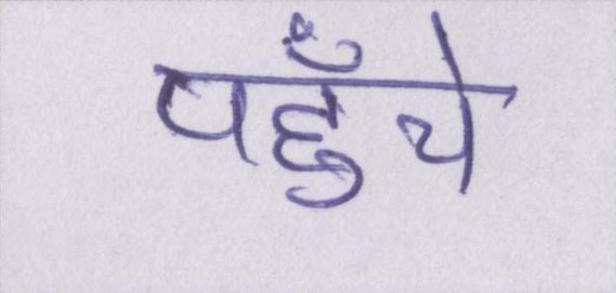 पहुँचे